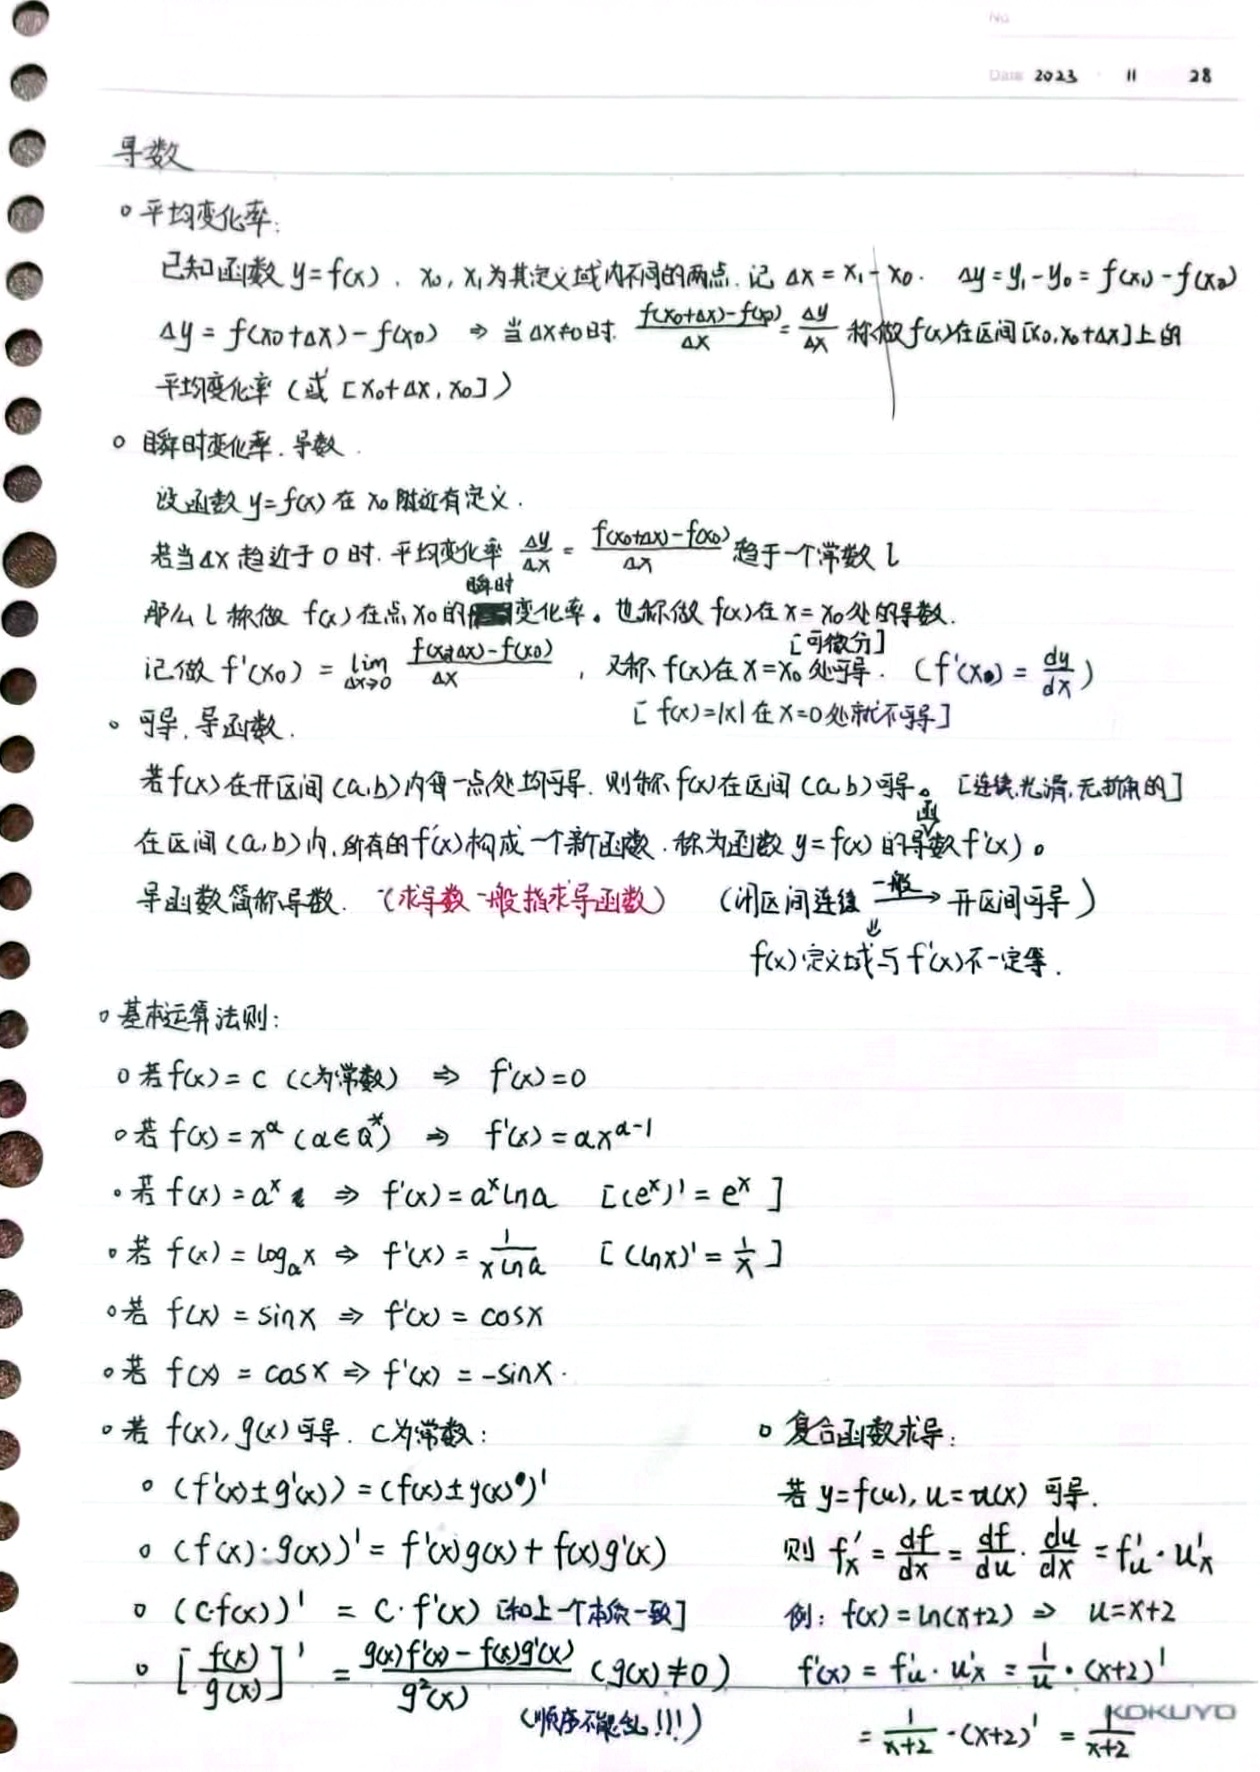 No.
Date 2023 · 11 28
导数
o 平均变化率:
已知函数 y=f(x), x₀, x₁为其定义域内不同的两点. 记 Δx = x₁-x₀. Δy=y₁-y₀=f(x₁)-f(x₀)
Δy = f(x₀+Δx)-f(x₀) ⇒ 当Δx≠0时. \frac{f(x₀+Δx)-f(x₀)}{Δx} = \frac{Δy}{Δx} 称做f(x)在区间[x₀, x₀+Δx]上的
平均变化率 (或 [x₀+Δx, x₀])
o 瞬时变化率. 导数.
设函数 y=f(x) 在 x₀ 附近有定义.
若当Δx 趋近于 0 时. 平均变化率 \frac{Δy}{Δx} = \frac{f(x₀+Δx)-f(x₀)}{Δx} 趋于一个常数 l
瞬时
那么 l 称做 f(x) 在点 x₀ 的变化率。也称做 f(x)在 x=x₀ 处的导数.
[可微分]
记做 f'(x₀) = \lim_{Δx→0} \frac{f(x₀+Δx)-f(x₀)}{Δx} , 又称 f(x)在 x=x₀ 处可导. (f'(x₀) = \frac{dy}{dx})
[f(x)=|x| 在 x=0 处就不可导]
o 可导. 导函数.
若f(x)在开区间(a,b)内每一点处均可导. 则称 f(x)在区间(a,b)可导。 [连续,光滑,无折角的]
函
在区间(a,b)内, 所有的f'(x)构成一个新函数. 称为函数 y=f(x) 的导数f'(x)。
导函数简称导数. (求导数一般指求导函数) (闭区间连续 \xrightarrow{一般} 开区间可导)
⇓
f(x)定义域与f'(x)不一定等.
o 基本运算法则:
o 若f(x)=C (C为常数) ⇒ f'(x)=0
o 若 f(x)=x^α (α∈Q^*) ⇒ f'(x)=αx^{α-1}
o 若 f(x)=a^x ⇒ f'(x)=a^x lna [(e^x)'=e^x]
o 若 f(x)=log_a x ⇒ f'(x)=\frac{1}{xlna} [(lnx)'=\frac{1}{x}]
o 若 f(x)=sinx ⇒ f'(x)=cosx
o 若 f(x)=cosx ⇒ f'(x)=-sinx.
o 若 f(x), g(x)可导. C为常数:
o (f'(x)±g'(x))=(f(x)±g(x))'
o (f(x)·g(x))'=f'(x)g(x)+f(x)g'(x)
o (Cf(x))' = C·f'(x) [和上一个本质一致]
o [\frac{f(x)}{g(x)}]' = \frac{g(x)f'(x)-f(x)g'(x)}{g²(x)} (g(x)≠0)
(顺序不能乱!!!)
o 复合函数求导:
若 y=f(u), u=u(x) 可导.
则 f'_x = \frac{df}{dx} = \frac{df}{du}·\frac{du}{dx} = f'_u·u'_x
例: f(x)=ln(x+2) ⇒ u=x+2
f'(x) = f'_u·u'_x = \frac{1}{u}·(x+2)'
= \frac{1}{x+2}·(x+2)' = \frac{1}{x+2}
KOKUYO